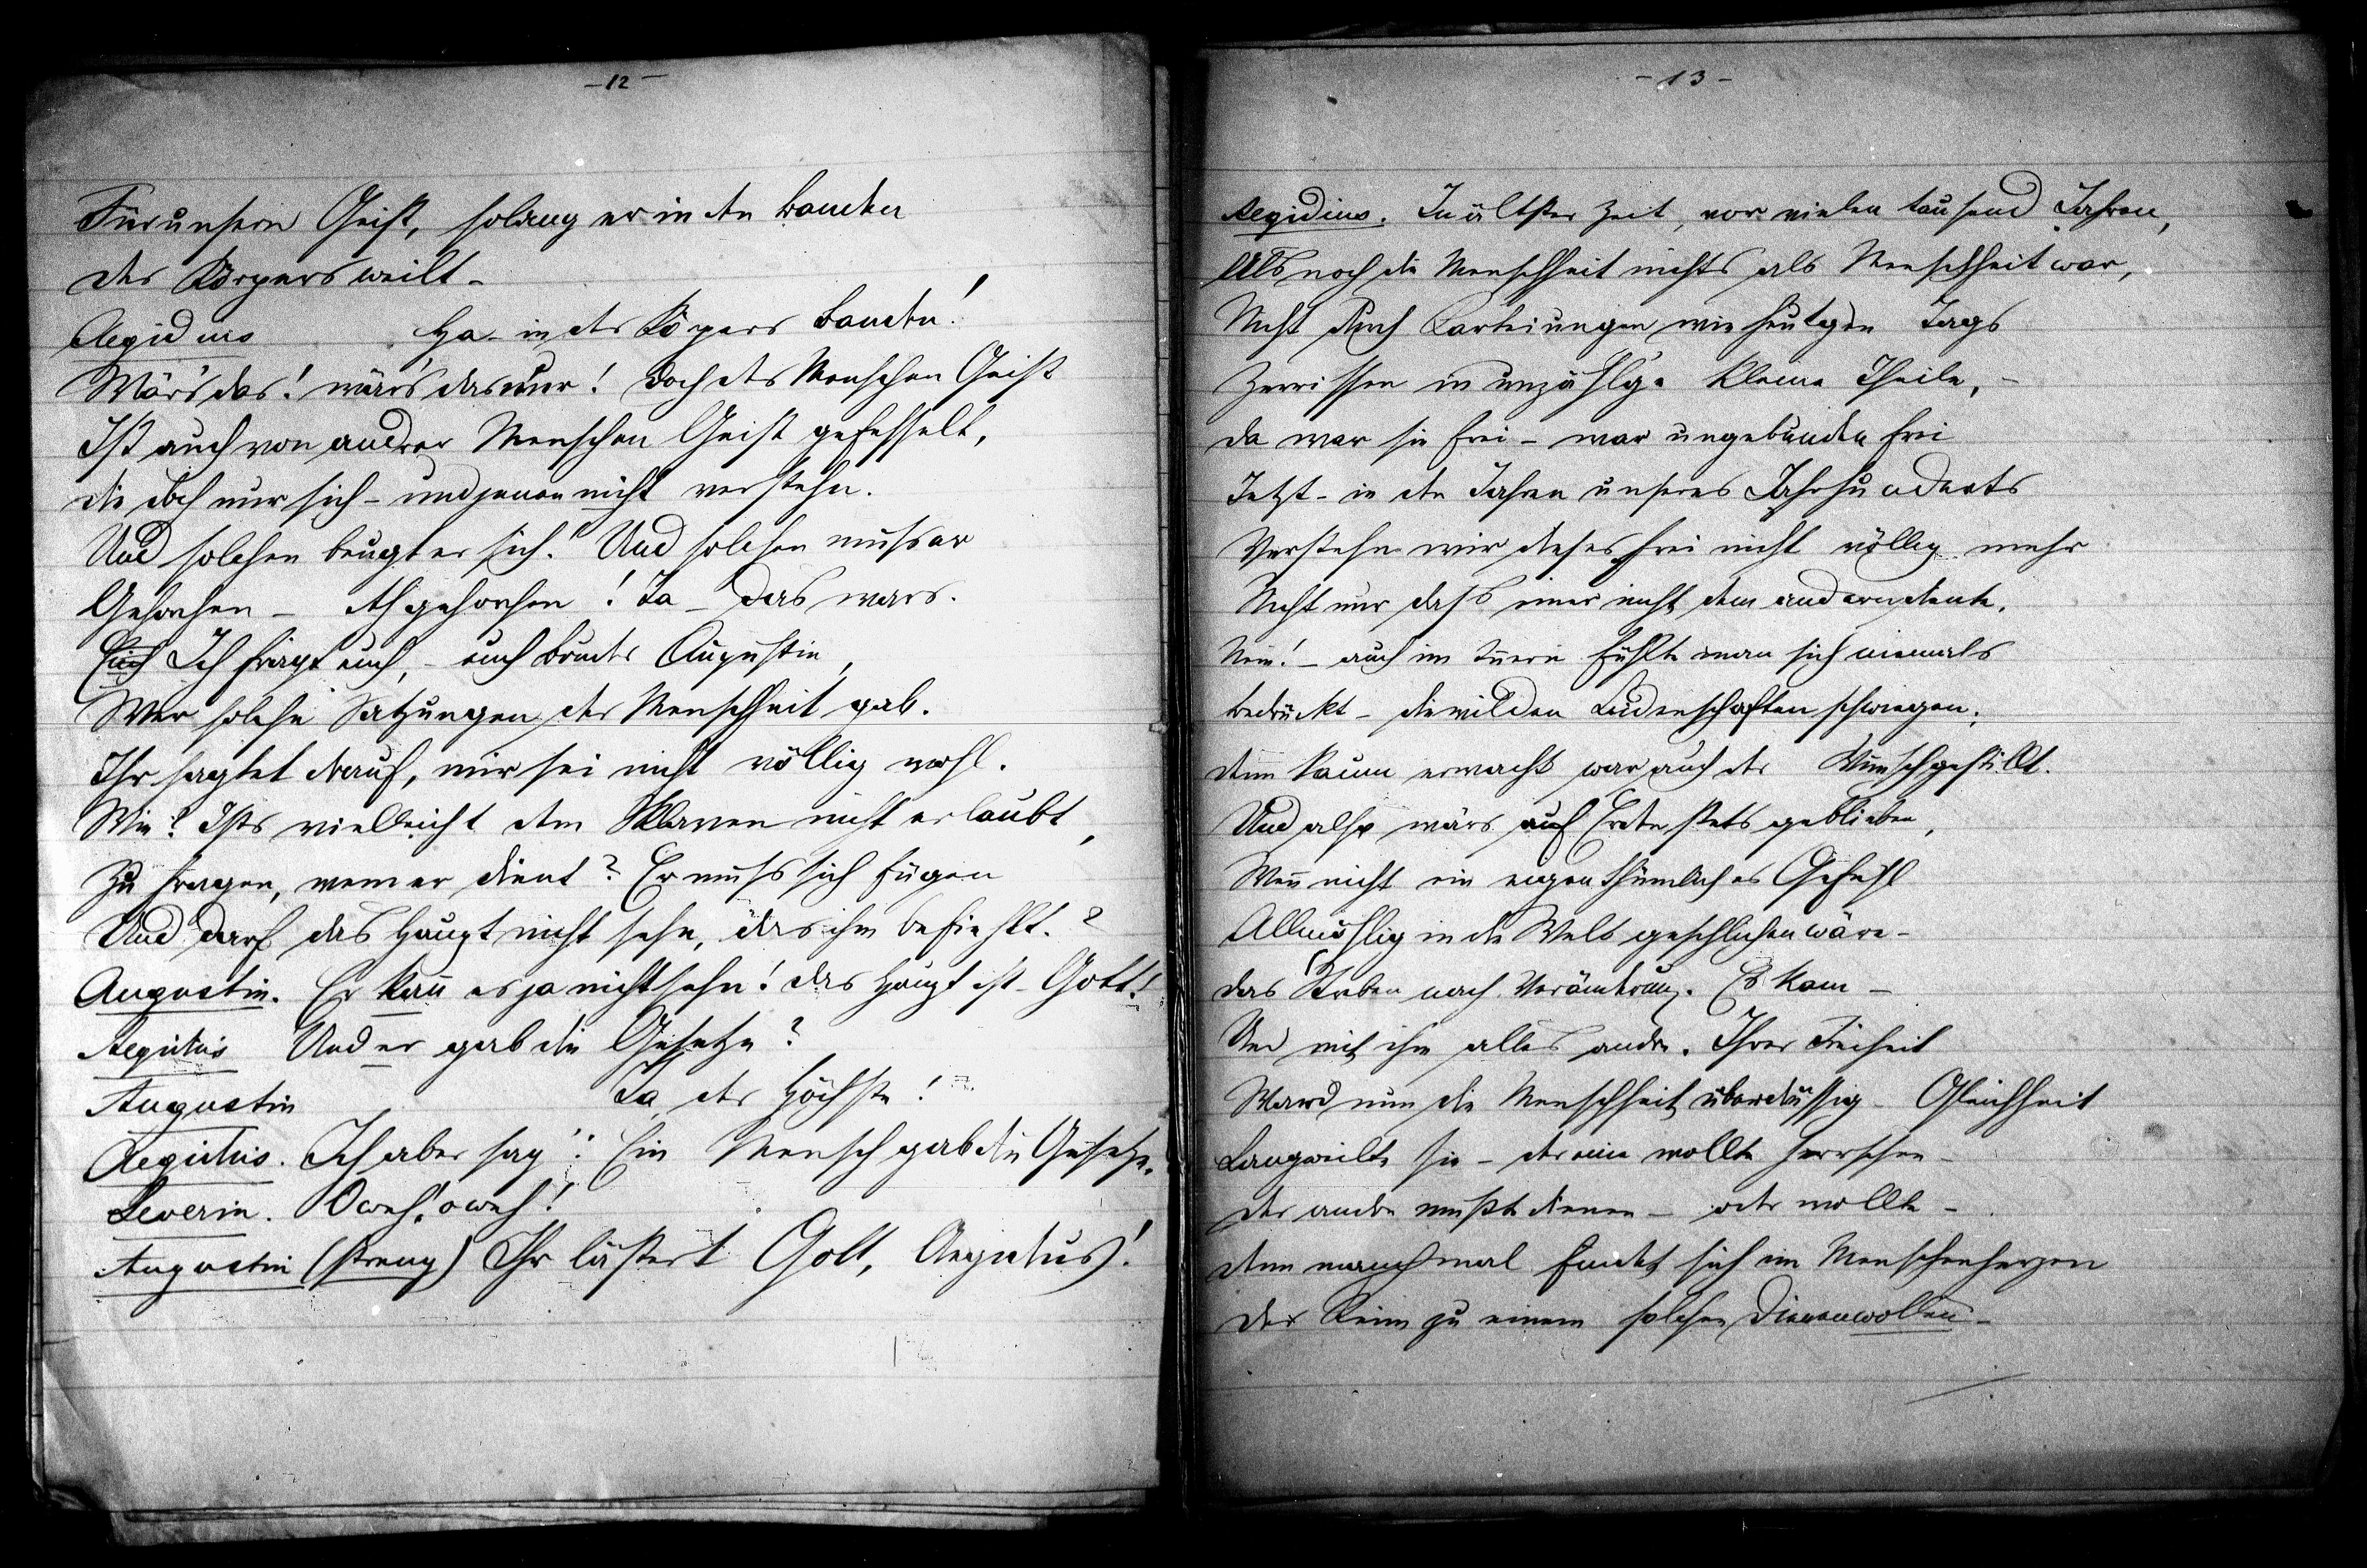 - 12 -
Für unsern Geist, solang er in den Banden
des Körpers weilt -
Aegidius Ha - in des Köpers Banden!
Wär's das! wär's das nur! Doch des Menschen Geist
Ist auch von andrer Menschen Geist gefesselt,
die doch nur sich - und jenen nicht verstehn.
Und solchen beugt er sich! Und solchen muss er
Gehorchen - Ah gehorchen! Ja - das war's.
Euch Ich fragt euch, - euch Bruder Augustin,
Wer solche Satzungen der Menschheit gab.
Ihr sagtet drauf, mir sei nicht völlig wohl.
Wie? Ists vielleicht dem Sklaven nicht erlaubt,
Zu fragen, wem er dient? Er muss sich fügen
Und darf das Haupt nicht sehn, das ihm befiehlt.?
Augustin. Er kann es ja nicht sehn! das Haupt ist - Gott!
Aegidius Und er gab die Gesetze?
Augustin Ja der Höchste!
Aegidius. Ich aber sag': Ein Mensch gab die Gesetze.
Severin. O weh! o weh!
Augustin (streng) Ihr lästert Gott, Aegidius!
- 13 -
Aegidius. In ältster Zeit, vor vielen tausend Jahren,
Als noch die Menschheit nichts als Menschheit war,
Nicht durch Parteiungen wie heutgen Tags
Zerrissen in unzählge kleine Theile, -
da war sie frei - war ungebunden frei
Jetzt - in den Jahren unseres Jahrhunderts
Verstehn wir dieses frei nicht völlig mehr
Nicht nur dass einer nicht dem anderen diente,
Nein! - auch im Innern fühlte man sich niemals
bedrückt - die wilden Leidenschaften schwiegen;
denn kaum erwacht war auch der Wunsch gestillt.
Und also wärs auf Erden stets geblieben,
Wenn nicht ein eigenthümliches Gefühl
Allmählig in die Welt geschlichen wäre -
das Streben nach Verändrung. Es kam -
Und mit ihm alles andre. Ihrer Freiheit
Ward nun die Menschheit überdrüssig - Gleichheit
Langweilte sie - der eine wollte herrschen -
der andre musste dienen - oder wollte -
denn manchmal findet sich im Menschenherzen
der Keim zu einem solchen Dienenwollen -